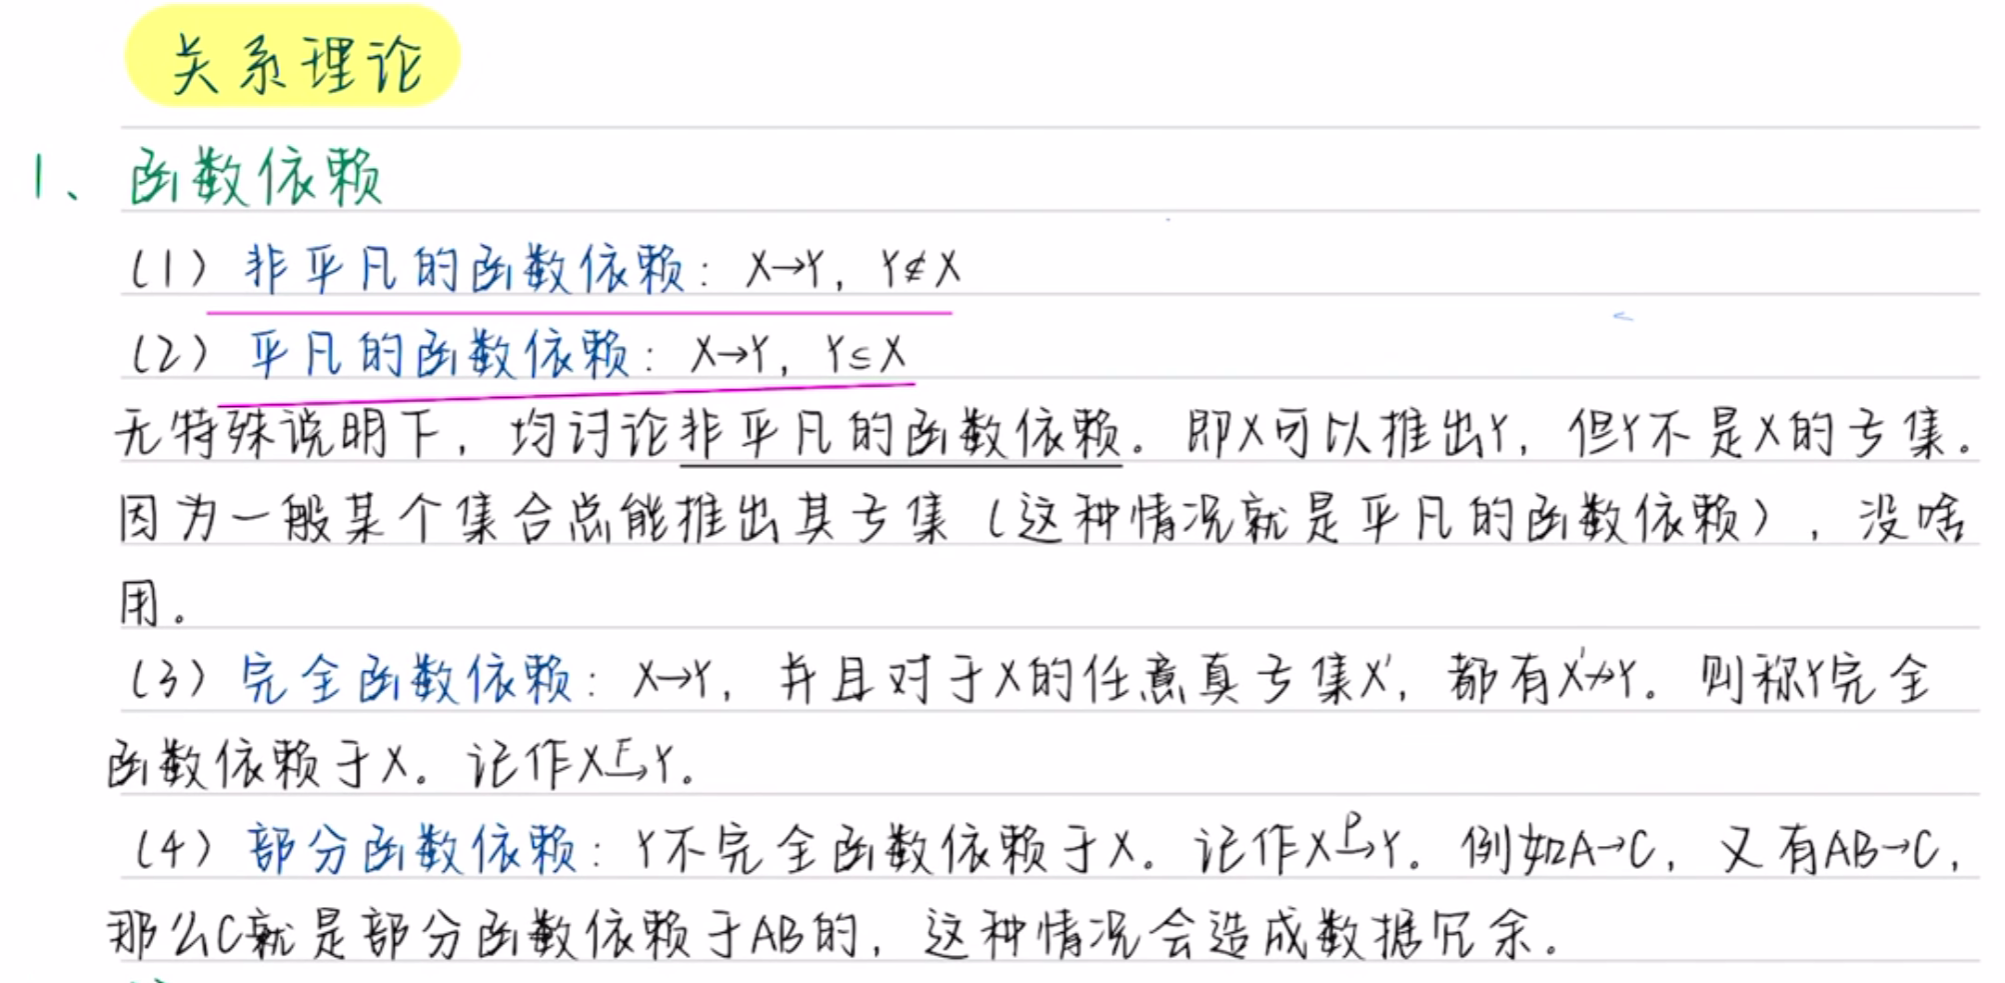 关系理论
1、函数依赖
(1) 非平凡的函数依赖：X→Y，Y⊄X
(2) 平凡的函数依赖：X→Y，Y⊆X
无特殊说明下，均讨论非平凡的函数依赖。即X可以推出Y，但Y不是X的子集。
因为一般某个集合总能推出其子集（这种情况就是平凡的函数依赖），没啥
用。
(3) 完全函数依赖：X→Y，并且对于X的任意真子集X'，都有X'↛Y。则称Y完全
函数依赖于X。记作X F→Y。
(4) 部分函数依赖：Y不完全函数依赖于X。记作X P→Y。例如A→C，又有AB→C，
那么C就是部分函数依赖于AB的，这种情况会造成数据冗余。